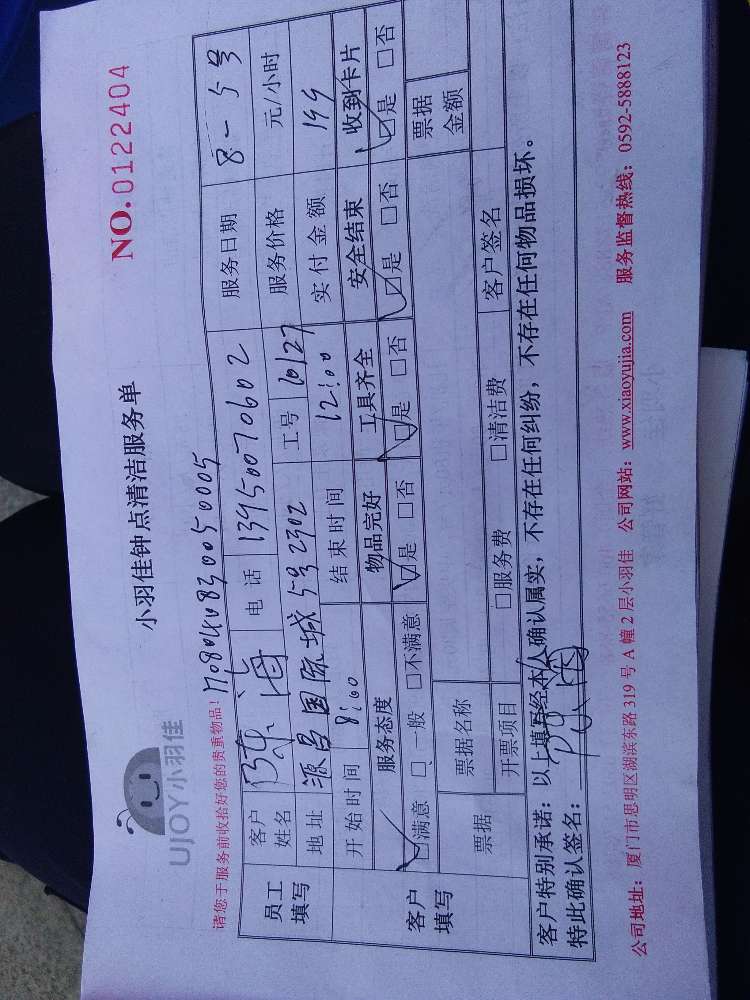 小羽佳钟点清洁服务单
NO.0122404
UJOY小羽佳
请您于服务前收拾好您的贵重物品!
员工填写 客户姓名 陈海 电话 13950070602 服务日期 8-5号
地址 源昌国际城5号2302 工号 10127 服务价格 元/小时
开始时间 8:00 结束时间 12:00 实付金额 144
客户填写 服务态度 物品完好 工具齐全 安全结束 收到卡片
☑满意 □一般 □不满意 ☑是 □否 ☑是 □否 ☑是 □否 ☑是 □否
票据 票据名称 票据金额
开票项目 □服务费 □清洁费 客户签名
客户特别承诺:以上填写经本人确认属实,不存在任何纠纷,不存在任何物品损坏。
特此确认签名: 陈海
公司地址:厦门市思明区湖滨东路 319 号 A 幢 2 层小羽佳 公司网站:www.xiaoyujia.com 服务监督热线:0592-5888123